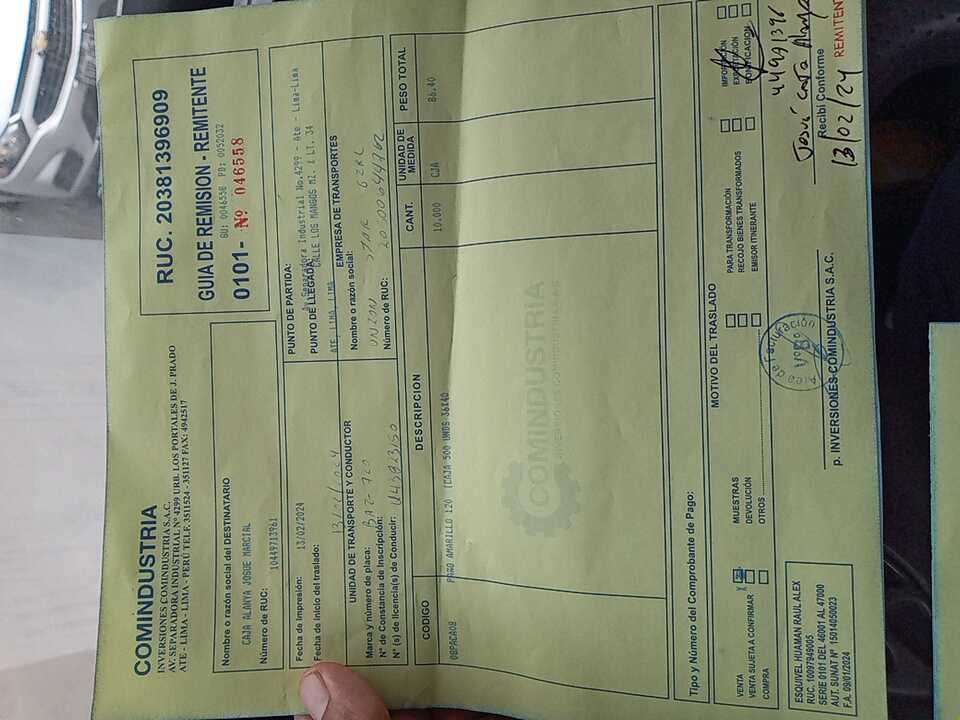 COMINDUSTRIA
INVERSIONES COMINDUSTRIA S.A.C.
AV. SEPARADORA INDUSTRIAL Nº 4299 URB. LOS PORTALES DE J. PRADO
ATE - LIMA - PERÚ TELF. 3511524 - 351127 FAX: 4942517
RUC. 20381396909
GUIA DE REMISION - REMITENTE
GU: 0046558 PD: 0052032
0101- Nº 046558
Nombre o razón social del DESTINATARIO
CAJA ALANYA JOSUE MARCIAL
Número de RUC: 10449713961
PUNTO DE PARTIDA:
Av Separadora Industrial No.4299 - Ate - Lima-Lima
PUNTO DE LLEGADA:
CALLE LOS MANGOS MZ. I LT. 34
ATE, LIMA, LIMA
Fecha de Impresión: 13/02/2024
Fecha de Inicio del traslado:
UNIDAD DE TRANSPORTE Y CONDUCTOR
Marca y número de placa: BAZ-720
Nº de Constancia de Inscripción:
Nº (s) de licencia(s) de Conducir:
EMPRESA DE TRANSPORTES
Nombre o razón social:
UNION STAR
Número de RUC:
CODIGO DESCRIPCION CANT. UNIDAD DE MEDIDA PESO TOTAL
08PACA08 PAÑO AMARILLO 120 (CAJA 500 UNDS 36X40 10.000 CJA 86.40
COMINDUSTRIA
INVERSIONES COMINDUSTRIA SAC
Tipo y Número del Comprobante de Pago:
MOTIVO DEL TRASLADO
VENTA X
VENTA SUJETA A CONFIRMAR
COMPRA
MUESTRAS
DEVOLUCIÓN
OTROS
PARA TRANSFORMACIÓN
RECOJO BIENES TRANSFORMADOS
EMISOR ITINERANTE
IMPORTACIÓN
EXPORTACIÓN
BONIFICACION
ESQUIVEL HUAMAN RAUL ALEX
RUC. 10097949005
SERIE 0101 DEL 46001 AL 47000
AUT. SUNAT Nº 15014050023
F.A. 09/01/2024
Area de Facturación
VºBº
p. INVERSIONES COMINDUSTRIA S.A.C.
Recibí Conforme
13/02/24
REMITEN